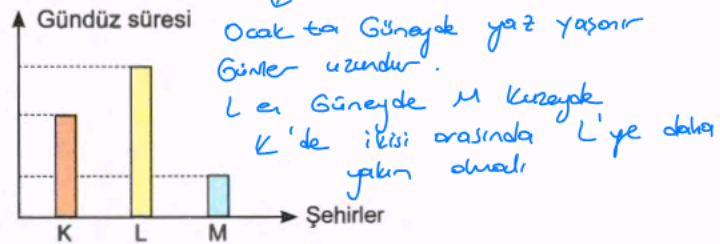 Gündüz süresi
Ocak ta Güneyde yaz yaşanır
Günler uzundur.
L en Güneyde M Kuzeyde
K'de ikisi arasında L'ye daha
yakın olmalı
Şehirler
K L M